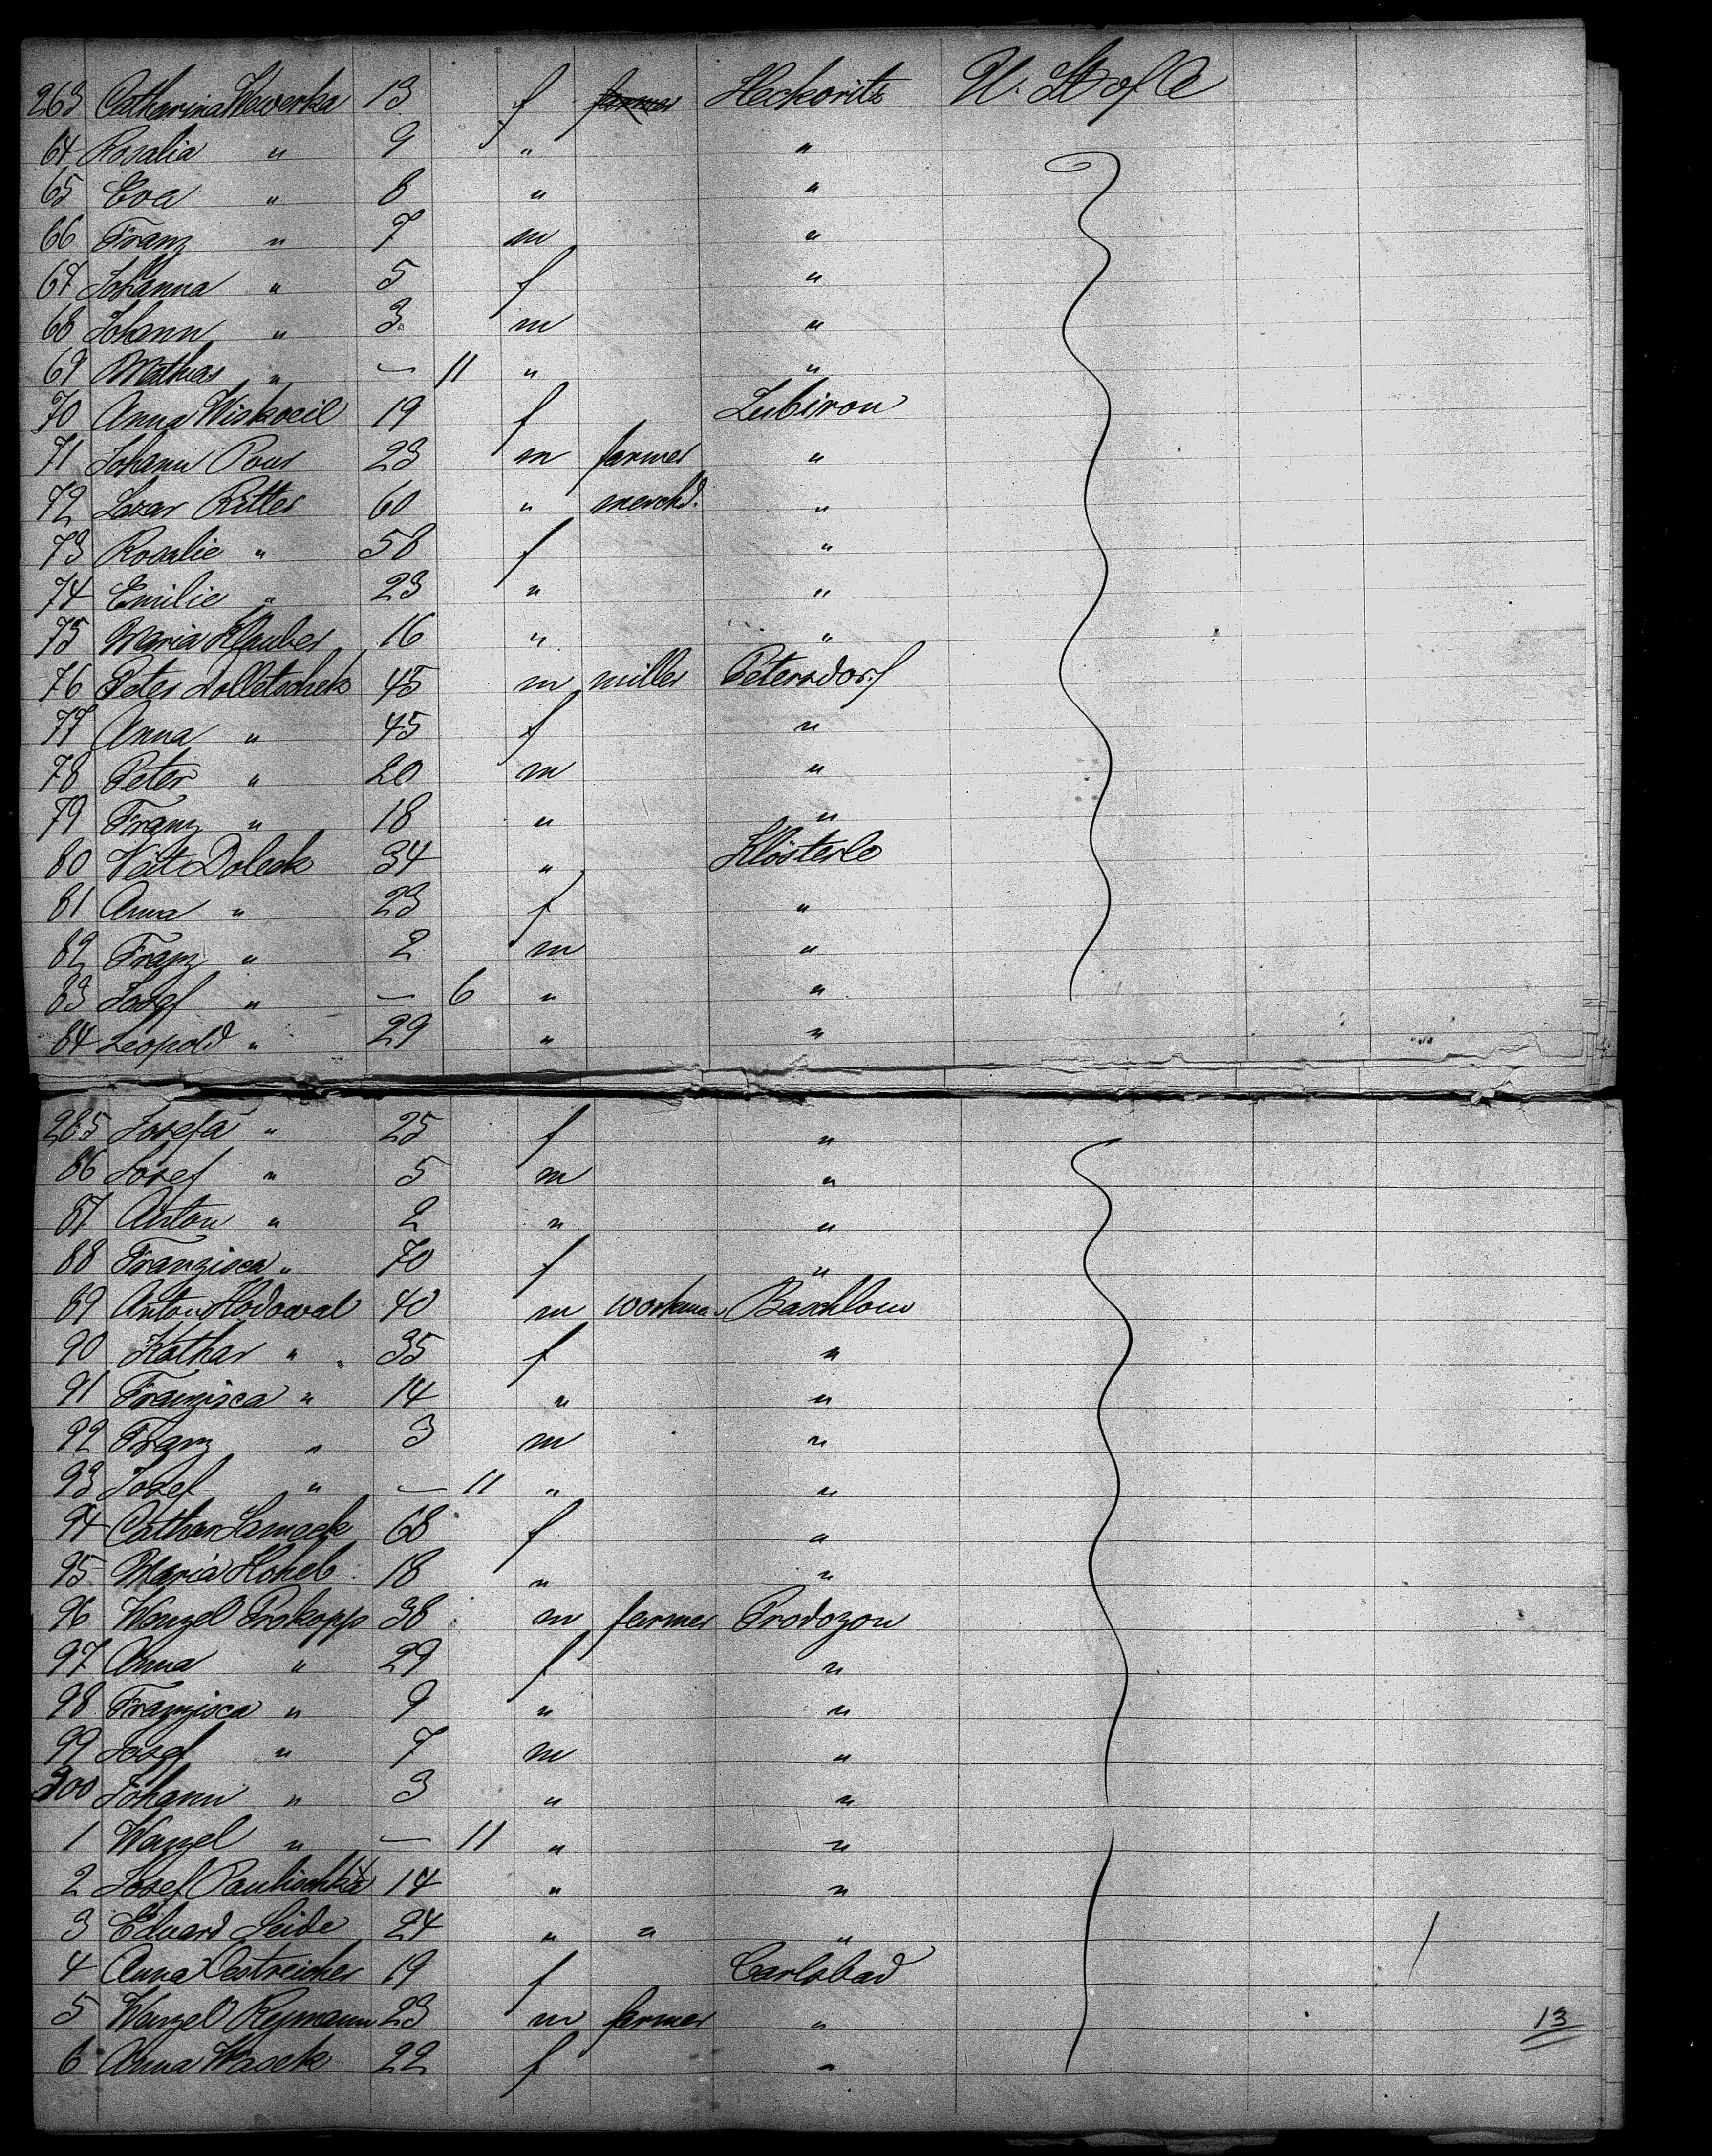 263 Catharina Wewerka 13 f farmer Heckoritz U. St of A
64 Rosalia " 9 " "
65 Eva " 8 " "
66 Franz " 7 m "
67 Johanna " 5 f "
68 Johann " 3 m "
69 Mathias " — 11 " "
70 Anna Wiskocil 19 f Lubiron
71 Johann Pour 23 m farmer "
72 Lazar Ritter 60 " merchd. "
73 Rosalie " 58 f "
74 Emilie " 23 " "
75 Maria Klauber 16 " "
76 Peter Dolletschek 45 m miller Petersdorf
77 Anna " 45 f "
78 Peter " 20 m "
79 Franz " 18 " "
80 Veit Doleck 34 " Klösterle
81 Anna " 23 f "
82 Franz " 2 m "
83 Josef " — 6 " "
84 Leopold " 29 " "
285 Josefa " 25 f "
86 Josef " 5 m "
87 Anton " 2 " "
88 Franzisca " 70 f "
89 Anton Hodowal 40 m workma. Baschlow
90 Kathar " 35 f "
91 Franzisca " 14 " "
92 Franz " 3 m "
93 Josef " — 11 " "
94 Cathar 68 f "
95 Maria Hohel 18 " "
96 Wenzel Prokopp 38 m farmer Prodozon
97 Anna " 29 f "
98 Franzisca " 9 " "
99 Josef " 7 m "
300 Johann " 3 " "
1 Wenzel " — 11 " "
2 Josef Paulischka 14 " "
3 Eduard Seide 24 " " "
4 Anna Oestreicher 19 f Carlsbad
5 Wenzel Reymann 23 m farmer "
13
6 Anna Wasek 22 f "